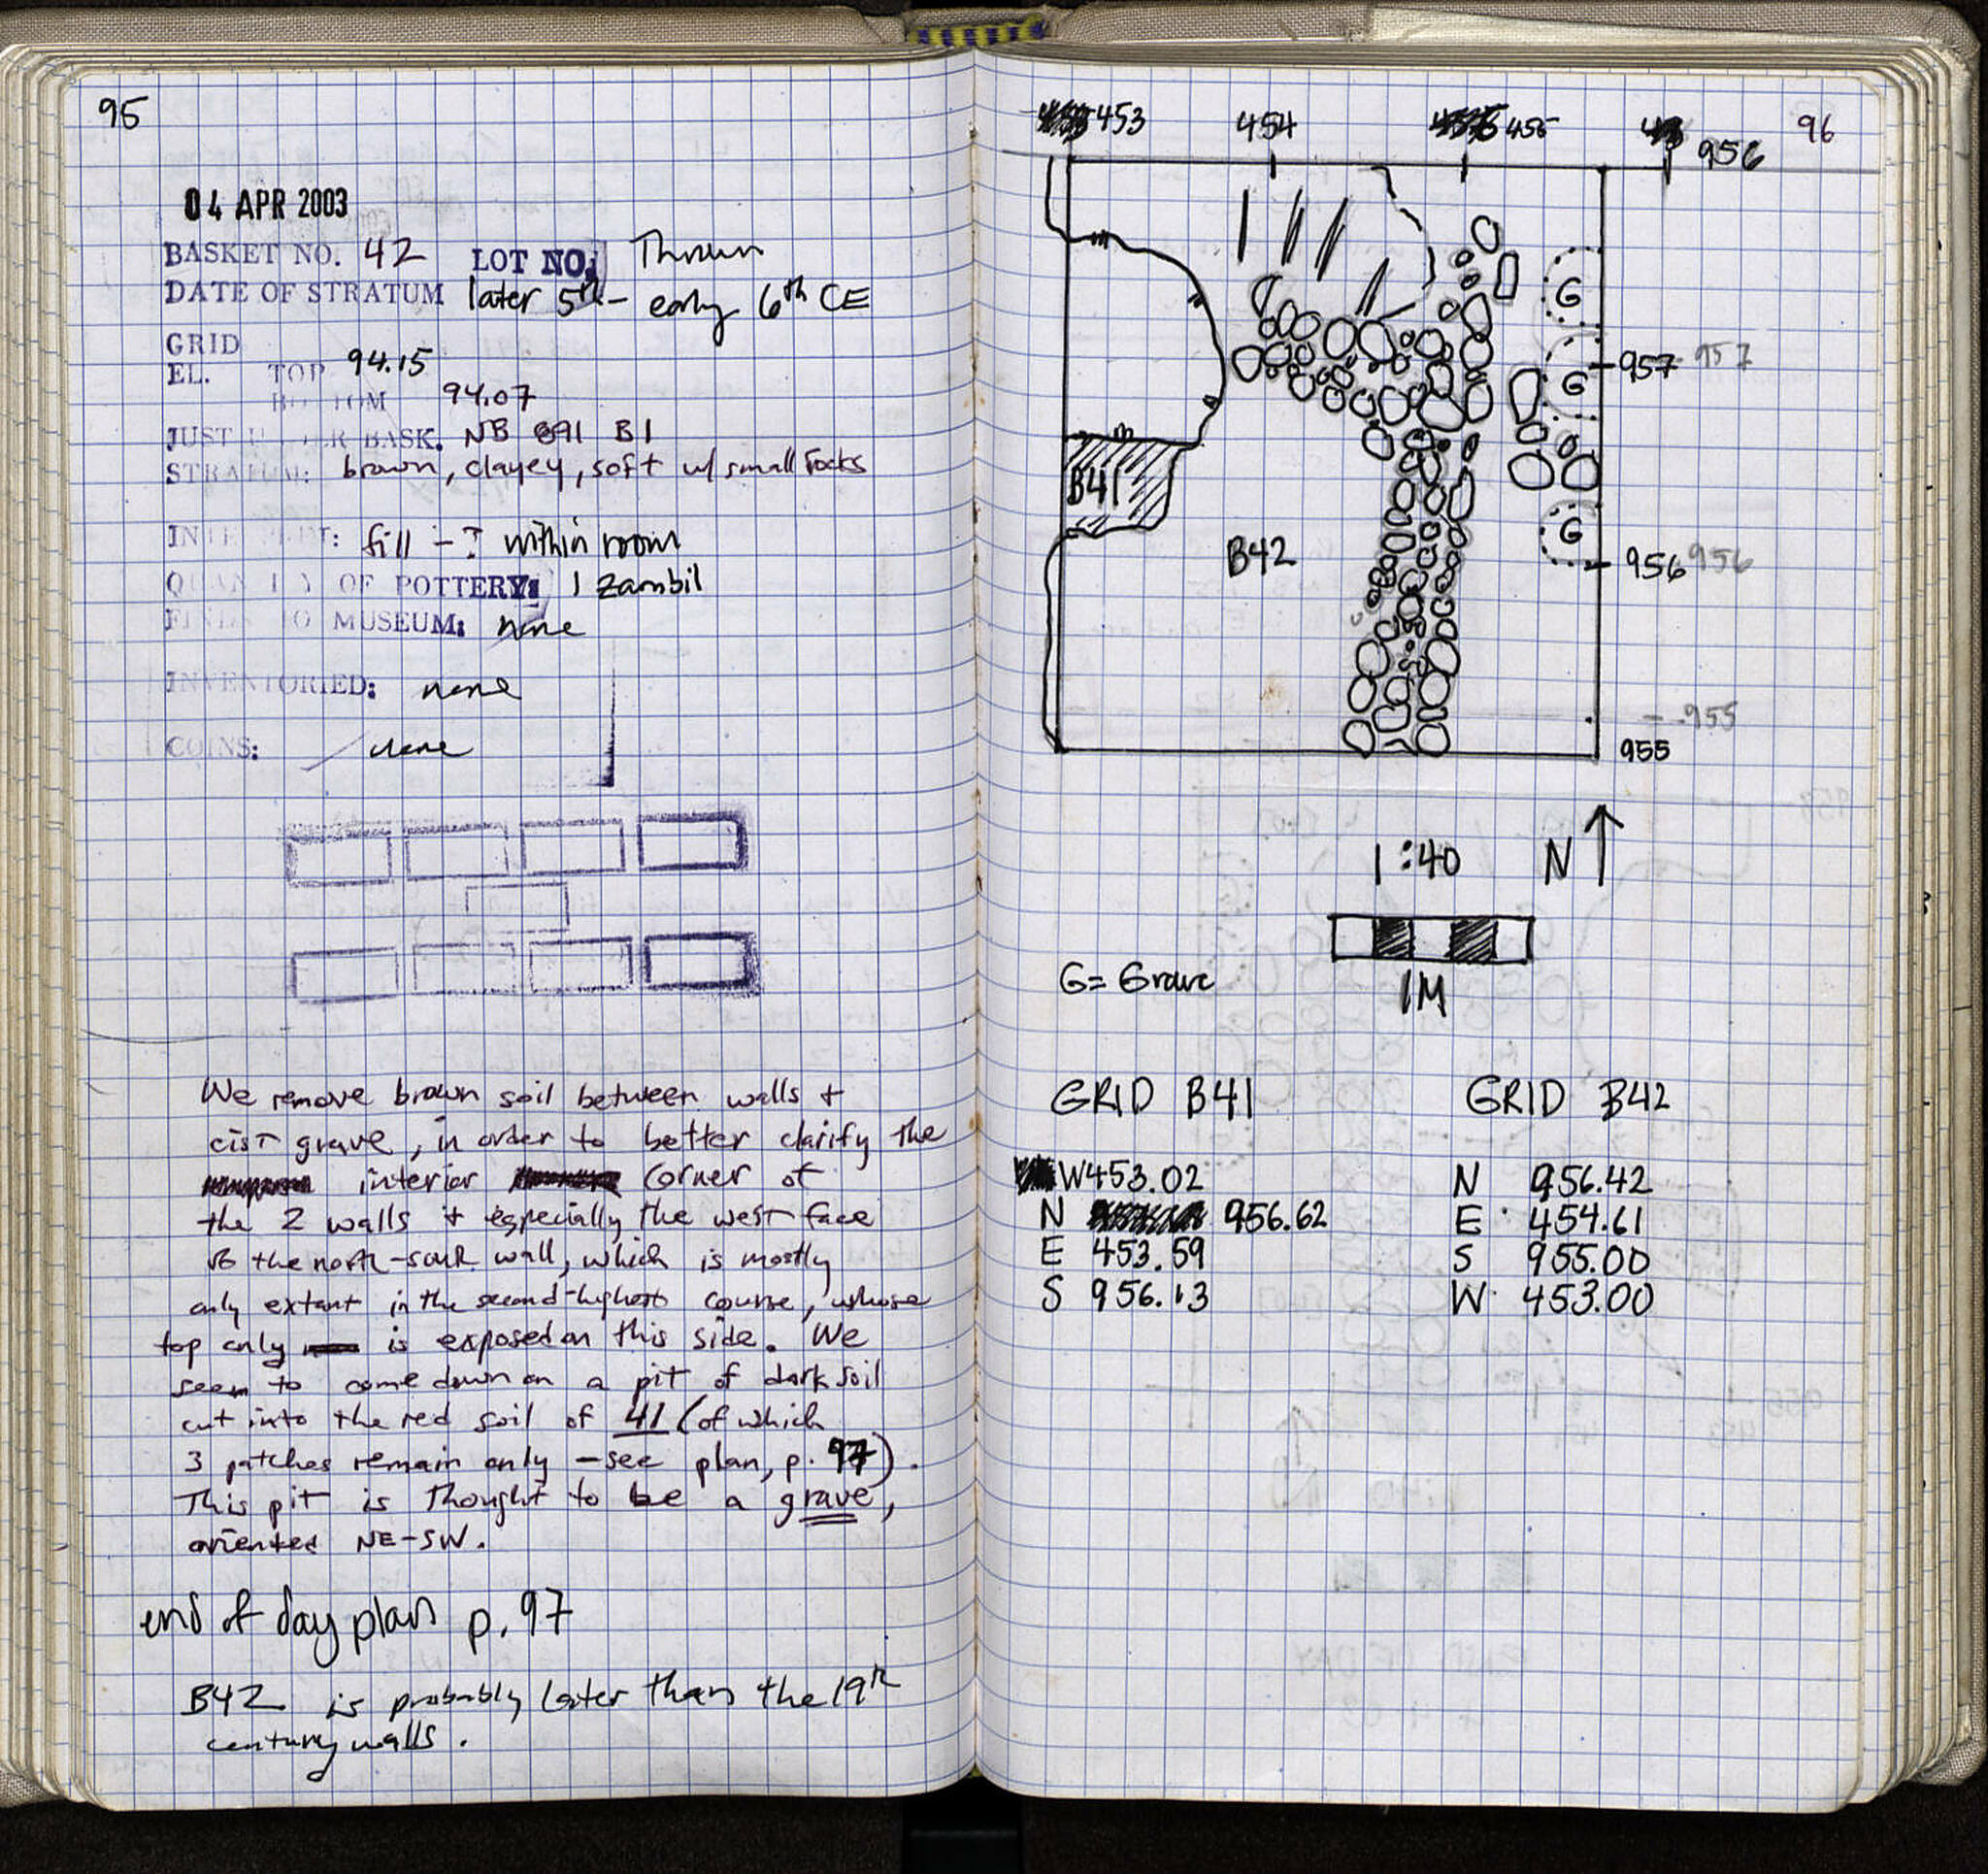 95
04 APR 2003
BASKET NO. 42 LOT NO. Thrown
DATE OF STRATUM later 5th - early 6th CE
GRID
EL. TOP 94.15
BOTTOM 94.07
JUST UNDER BASK. NB 891 B1
STRATUM: brown, clayey, soft w/ small rocks
INTERPRET: fill - ? within room
QUANTITY OF POTTERY: 1 zambil
FINDS TO MUSEUM: none
INVENTORIED: none
COINS: none
We remove brown soil between walls +
cist grave, in order to better clarify the
interior corner of
the 2 walls + especially the west face
of the north-south wall, which is mostly
only extant in the second-highest course, whose
top only is exposed on this side. We
seem to come down on a pit of dark soil
cut into the red soil of 41 (of which
3 patches remain only - see plan, p. 97).
This pit is thought to be a grave,
oriented NE-SW.
end of day plan p. 97
B42 is probably later than the 19th
century walls.
453 454 455 956 96
G
957 957
G
B41
G
B42
956 956
955
955
1:40 N
G = Grave
1M
GRID B41
W 453.02
N 956.62
E 453.59
S 956.13
GRID B42
N 956.42
E 454.61
S 955.00
W 453.00